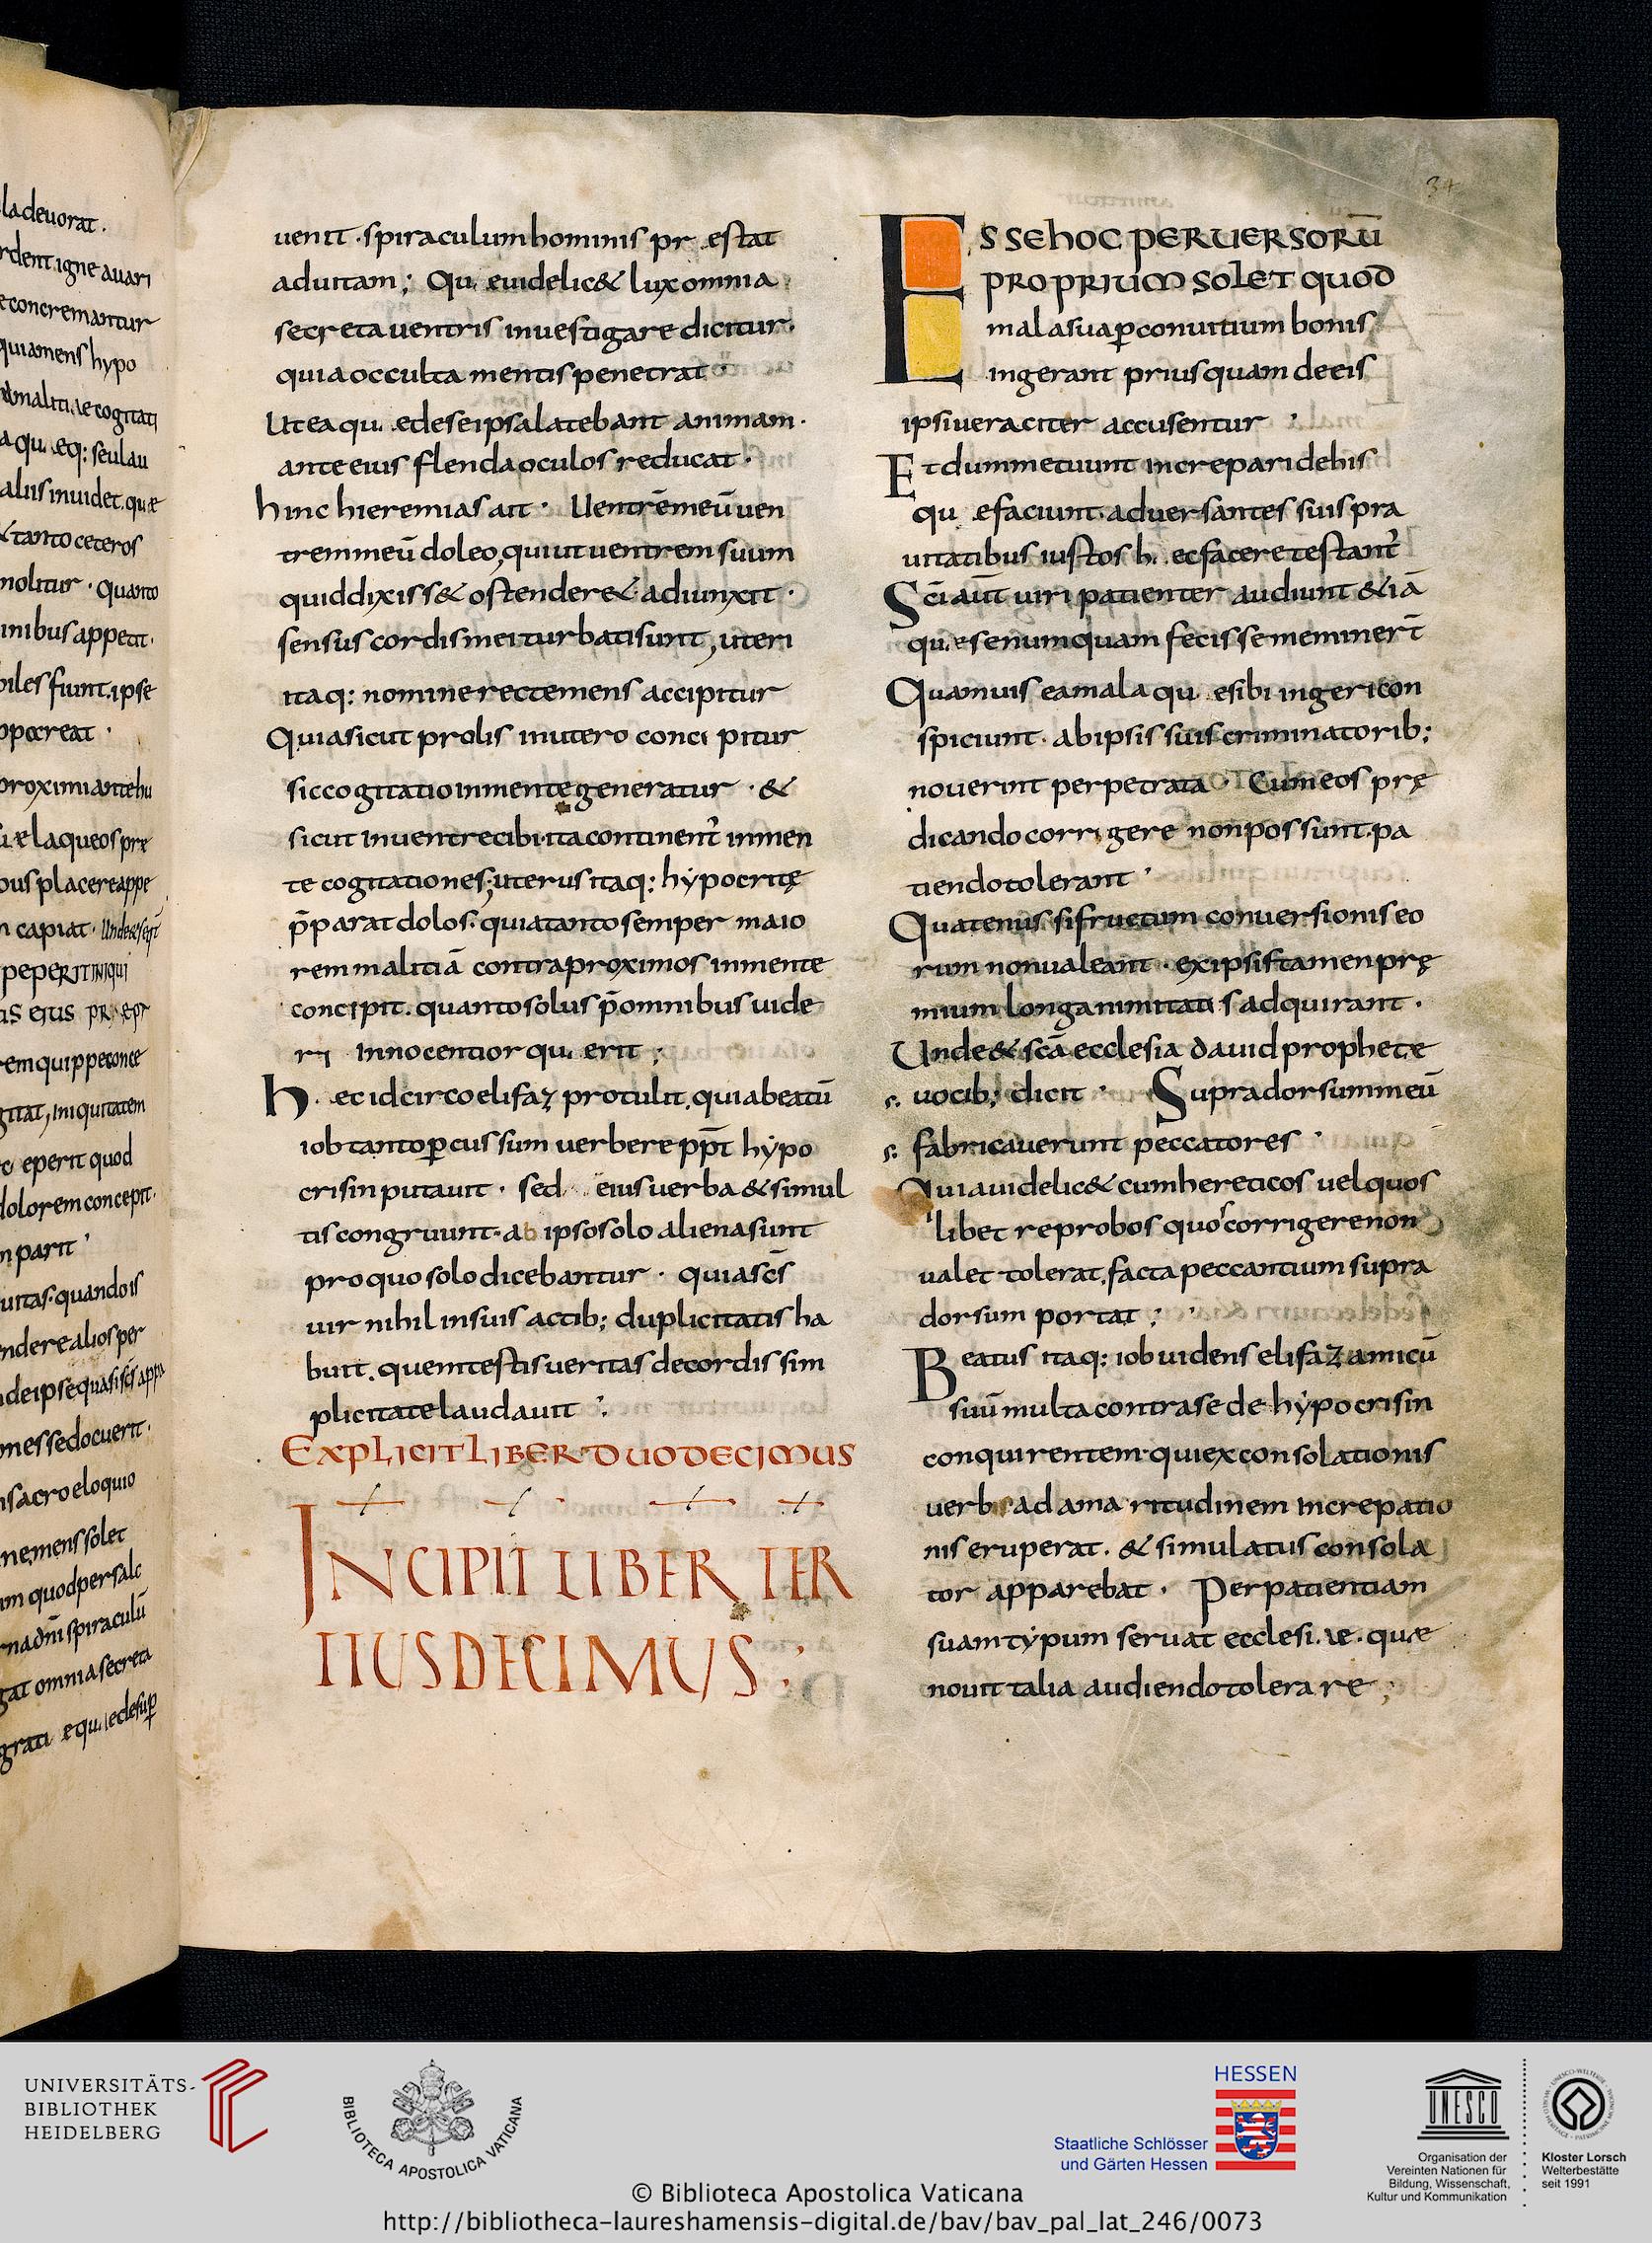 ladeuorat.
rdent.igne auari
concremantur
quiamens hypo
malitiae cogitati
aqu.æq: seulau
aliis inuidet. quæ
& tanto ceteros
molitur · quanto
inibus appetit.
biles fiunt. ipse
ppareat ·
proximi ante hu
æ laqueos pre
ous placere appe
n capiat.
peperit iniqui
us eius pr.epr
rem quippe conce
gitat, iniquitatem
c. eperit quod
dolorem concepit.
n parit '
uitas. quando is
ndere alios per
de ipse quasi scs appa
mes sedocuerit.
n sacro eloquio
ne mens solet
m quod per salo
rna dni spiraculu
gat omnia secreta
grati
uenit · spiraculum hominis pr .estat
ad uitam ; Qu. e uidelic& lux omnia
secreta uentris inuestigare dicitur.
quia occulta mentis penetrat ·
Ut ea qu. ędese ipsa latebant animam.
ante eius flenda oculos reducat ·
hinc hieremias ait · Uentrē meū uen
trem meū doleo, qui ut uentrem suum
quid dixiss& ostender& adiunxit ·
sensus cordis mei turbati sunt, uteri
itaq: nomine recte mens accipitur
Quia sicut prolis in utero concipitur
sic cogitatio in mente generatur · &
sicut in uentre cibi. ita continent̄ in men
te cogitationes; uterus itaq: hypocritę
p̄parat dolos. quia tanto semper maio
rem malitiā contra proximos in mente
concipit. quanto solus p̄ omnibus uide
ri innocentior qu. erit ;
h. ec idcirco elifaz protulit. quia beatū
iob tanto ꝑcussum uerbere ppt̄ hypo
crisin putauit · sed eius uerba & si mul
tis congruunt. ab ipso solo aliena sunt
pro quo solo dicebantur · quia sc̄s
uir nihil in suis actib; duplicitatis ha
buit. quem testis ueritas de cordis sim
plicitate laudauit :
EXPLICIT LIBER DUODECIMUS
INCIPIT LIBER TER
TIUSDECIMUS :
34
ESSE HOC PERUERSORŪ
PROPRIUM SOLET QUOD
mala sua ꝑ conuitium bonis
ingerant prius quam de eis
ipsi ueraciter accusentur ·
Et dum metuunt increpari de his
qu .e faciunt. aduersantes suis pra
uitatibus iustos h. ec facere testant̄
Sc̄i aut̄ uiri patienter audiunt & iā
qu.e se numquam fecisse meminer̄t
Quamuis ea mala qu .e sibi ingeri con
spiciunt. ab ipsis suis criminatorib;
nouerint perpetrata · Cum eos prę
dicando corrigere non possunt. pa
tiendo tolerant ·
Quatenus si fructum conuersionis eo
rum non ualeant · ex ipsis tamen prę
mium longanimitatis adquirant ·
Unde & scā ecclesia dauid prophetę
s. uocib; dicit · Supra dorsum meū
s: fabricauerunt peccatores ·
Quia uidelic& cum hereticos uel quos
libet reprobos quos corrigere non
ualet tolerat, facta peccantium supra
dorsum portat ;
Beatus itaq: iob uidens elifaz amicū
suū multa contra se de hypocrisin
conquirentem. qui ex consolationis
verbis ad amaritudinem increpatio
nis eruperat. & simulatus consola
tor apparebat · Per patientiam
suam typum seruat ecclesi.æ. quæ
nouit talia audiendo tolerare ;
UNIVERSITÄTS-
BIBLIOTHEK
HEIDELBERG
BIBLIOTECA APOSTOLICA VATICANA
HESSEN
Staatliche Schlösser
und Gärten Hessen
UNESCO
Organisation der
Vereinten Nationen für
Bildung, Wissenschaft,
Kultur und Kommunikation
Kloster Lorsch
Welterbestätte
seit 1991
© Biblioteca Apostolica Vaticana
http://bibliotheca-laureshamensis-digital.de/bav/bav_pal_lat_246/0073